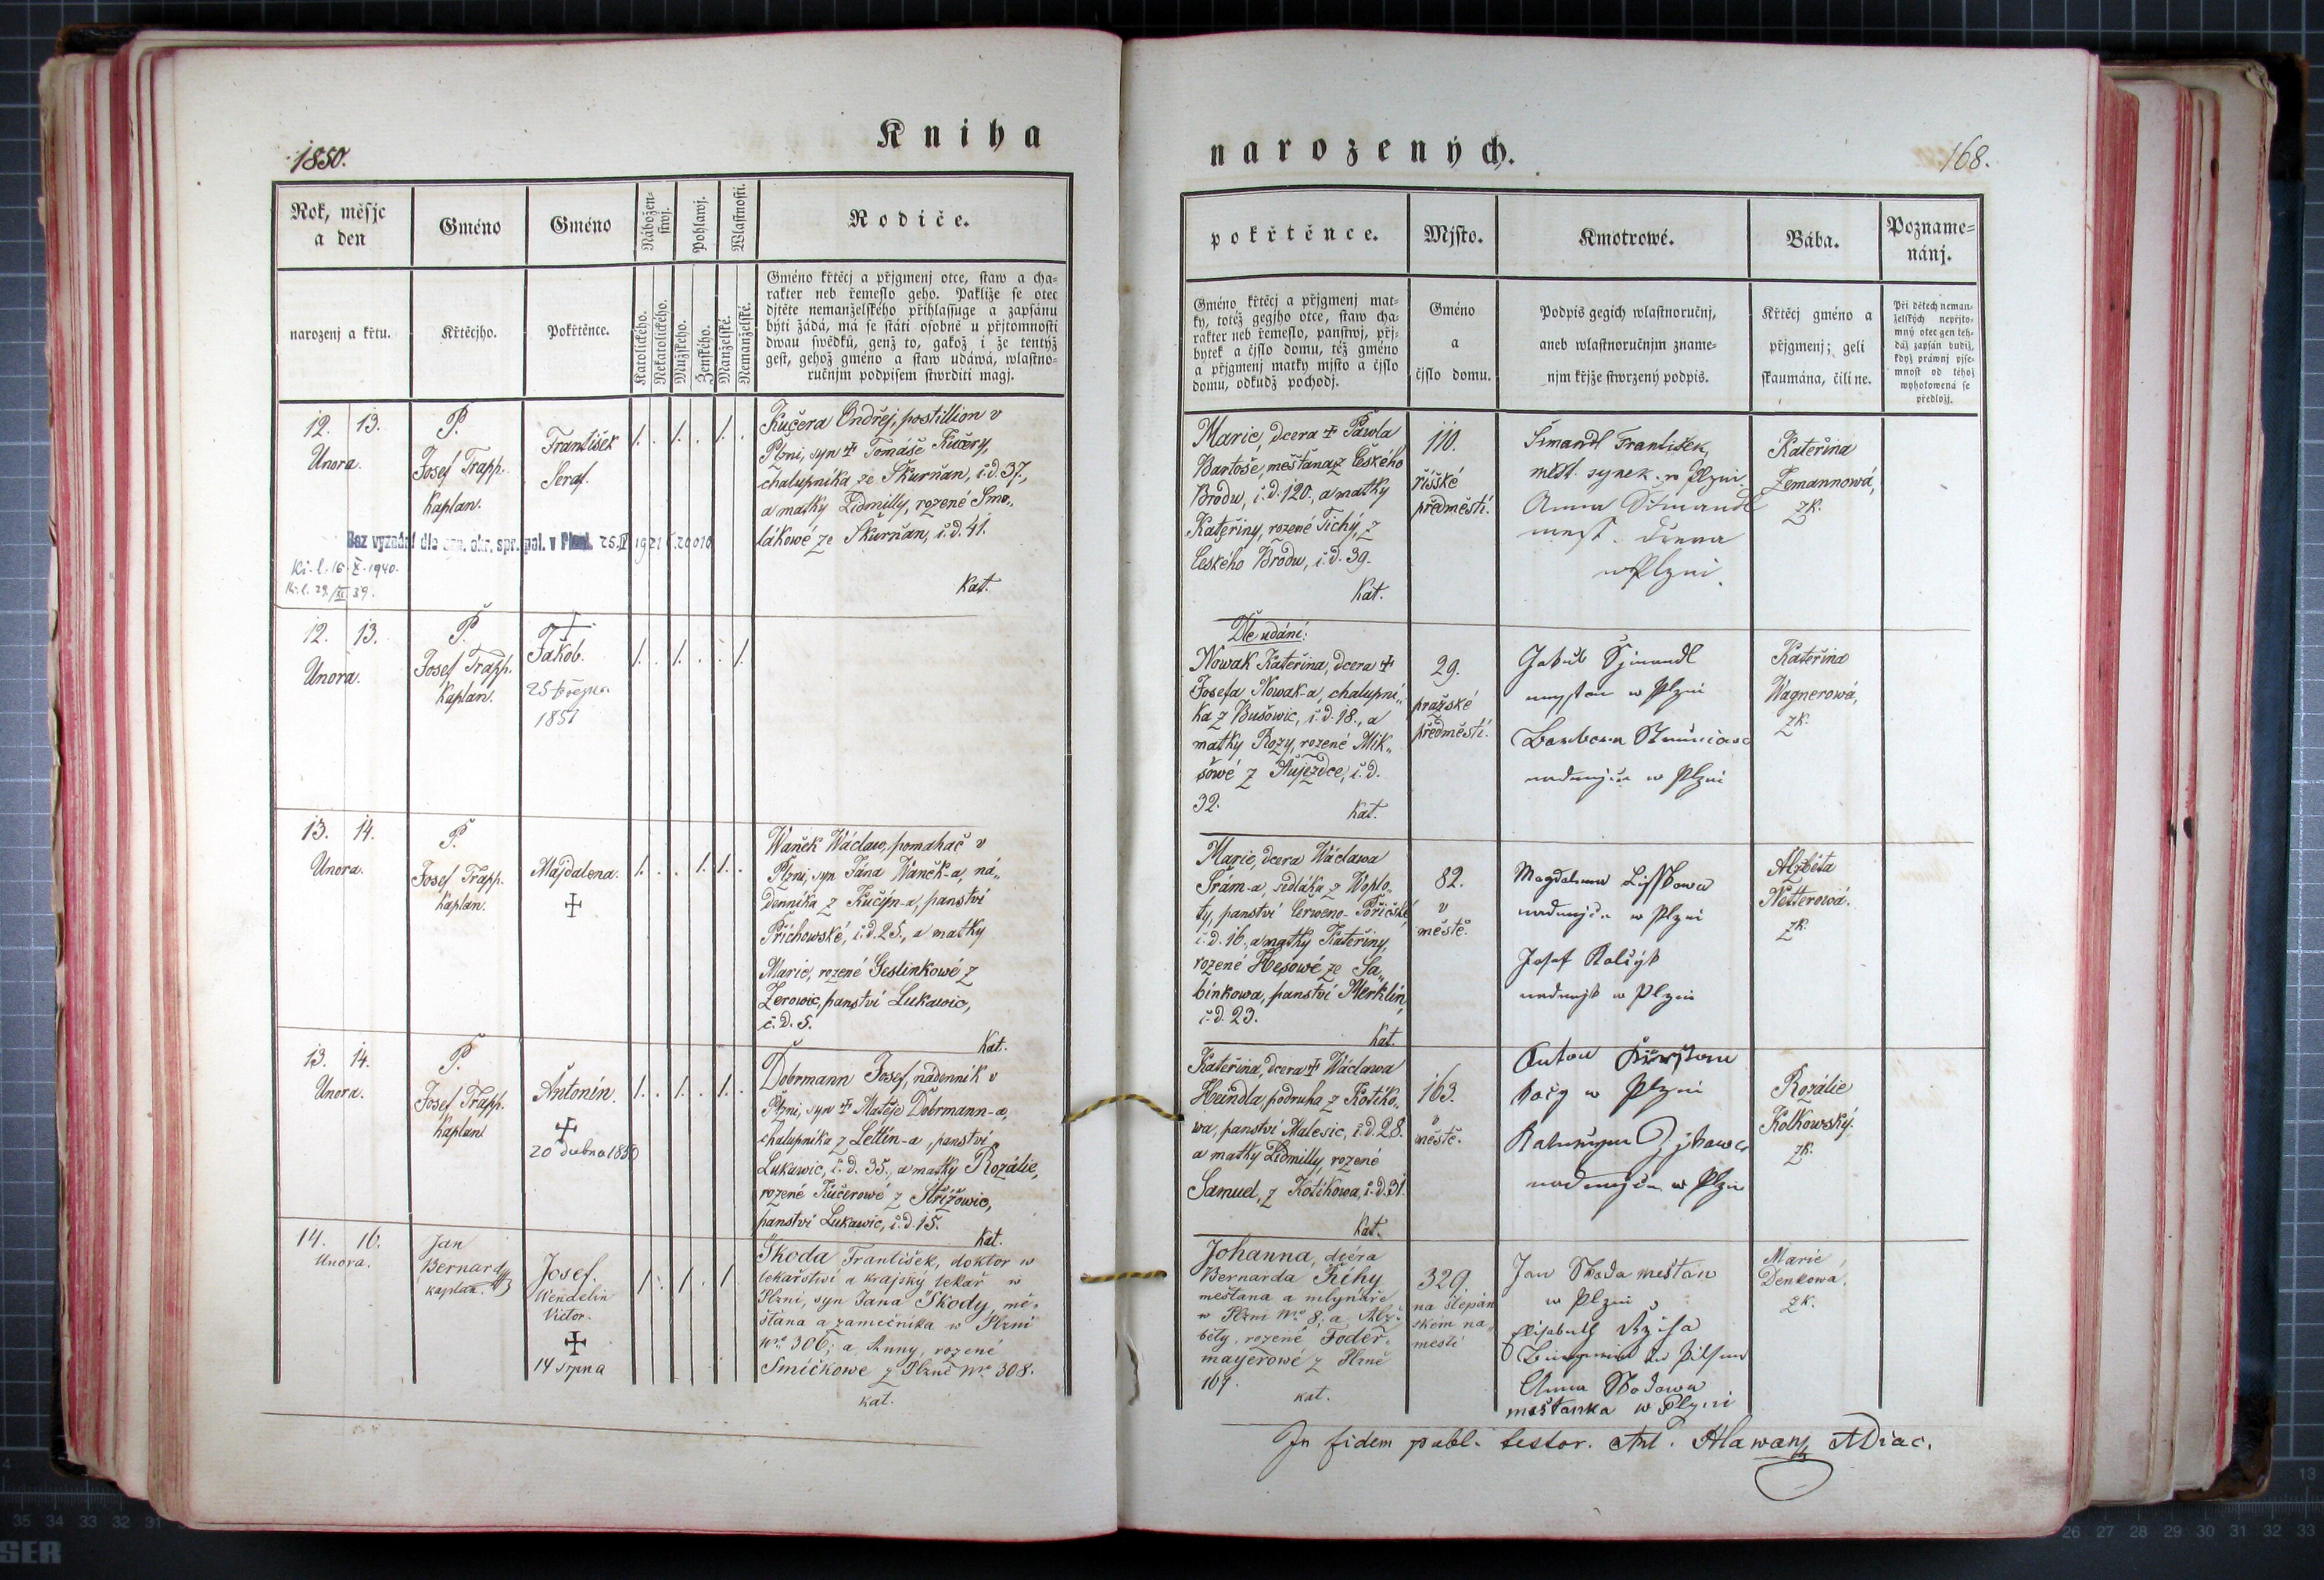 Kniha
narozených.
1850.
168.
Rok, měsjc
a den
Gméno
Gméno
Nábožen-
stwj.
Pohlawj.
Wlastnosti.
Rodiče.
narozenj a křtu.
Křtěcjho.
Pokřtěnce.
Katolického.
Nekatolického.
Mužského.
Ženského.
Manželské.
Nemanželské.
Gméno křtěcj a přjgmenj otce, staw a cha-
rakter neb řemeslo geho. Pakliže se otec
djtěte nemanželského přihlassuge a zapsánu
býti žádá, má se státi osobně u přjtomnosti
dwau swědků, genž to, gakož i že tentýž
gest, gehož gméno a staw udáwá, wlastno-
ručnjm podpisem stwrditi magj.
pokřtěnce.
Mjsto.
Kmotrowé.
Bába.
Pozname-
nánj.
Gméno křtěcj a přjgmenj mat-
ky, totéž gegjho otce, staw cha-
rakter neb řemeslo, panstwj, přj-
bytek a čjslo domu, též gméno
a přjgmenj matky mjsto a čjslo
domu, odkudž pochodj.
Gméno
a
čjslo domu.
Podpis gegich wlastnoručnj,
aneb wlastnoručnjm zname-
njm křjže stwrzený podpis.
Křtěcj gméno a
přjgmenj; geli
skaumána, čili ne.
Při dětech neman-
želských nepřjto-
mný otec gen teh-
dáž zapsán budiž,
když práwnj pjse-
mnost od téhož
wyhotowená se
předložj.
12. 13.
Unora.
P.
Josef Trapp.
Kaplan.
František
Seraf.
1. . 1. . 1. .
Kučera Ondřej, postillion v
Plzni, syn + Tomáše Kučery,
chalupníka ze Skurňan, č.d. 37.,
a matky Lidmilly, rozené Smo„
lákowé ze Skurňan, č.d. 41.
Kat.
Bez vyznání dle
okr. spr. pol. v Plzni. 25.IV 1921 č. 20010
Ki. l. 16. X. 1940.
Ki. l. 29./XI 39.
Marie, dcera + Pawla
Bartoše, měšťana z Českého
Brodu, č.d. 120., a matky
Kateřiny, rozené Tichý, z
Českého Brodu, č.d. 39.
Kat.
110.
říšské
předměstí.
Šimandl František,
měst. synek w Plzni.
Anna Šimandl
měst. dcera
w Plzni.
Kateřina
Zemannowá,
zk.
12. 13.
Unora.
P.
Josef Trapp.
Kaplan.
+
Jakob.
25 března
1851
1. . 1. . . 1.
Dle udání:
Nowak Kateřina, dcera +
Josefa Nowak-a, chalupní„
ka z Bušowic, č.d. 18., a
matky Rozy, rozené Mik„
šowé z Aujezdce, č.d.
32.
Kat.
29.
pražské
předměstí.
Jakub Sjmandl
w Plzni
w Plzni
Kateřina
Wagnerowá,
zk.
13. 14.
Unora.
P.
Josef Trapp.
Kaplan.
Majdalena.
+
1. . . 1. 1. .
Waněk Wáclaw, pomahač v
Plzni, syn Jána Waněk-a, ná„
denníka z Kučjn-a, panství
Příchowské, č.d. 25., a matky
Marie, rozené Geslinkowé z
Žerowic, panství Lukawic,
č.d. 5.
Kat.
Marie, dcera Wáclawa
Srám-a, sedláka z Woplo„
ty, panství Čerweno-Poříčské
č.d. 16., a matky Kateřiny,
rozené Hesowé ze Sa„
bínkowa, panství Merklín,
č.d. 23.
Kat.
82.
v
městě.
Magdalena Lisskowa
nadenjce w Plzni
Josef
nadenjk w Plzni
Alžběta
Netterowá.
zk.
13. 14.
Unora.
P.
Josef Trapp.
Kaplan
Antonín.
+
20 dubna 1850
1. . 1. . 1. .
Dobrmann Josef, nádenník v
Plzni, syn + Matěje Dobrmann-a,
chalupníka z Letkín-a, panství
Lukawic, č.d. 35., a matky Rozálie,
rozené Kučerowé z Střížowic,
panství Lukawic, č.d. 15.
Kat.
Kateřina, dcera + Wáclawa
Heindla, podruha z Kotěko„
wa, panství Malesic, č.d. 28.
a matky Lidmilly, rozené
Samuel, z Kotikowa, č.d. 31.
Kat.
163.
v
městě.
Anton
w Plzni
w Plzni
Rozálie
Kolkowský.
zk.
14. 16.
Unora.
Jan
Bernard
kaplan.
Josef.
Wendelin
Victor.
+
14 srpna
1. . 1. . 1.
Škoda František, doktor w
lekařstwí a krajský lekař w
Plzni, syn Jana Škody, mě-
šťana a zamečníka w Plzni
Nro 306; a Anny, rozené
Smíčkowe z Plzně Nro 308.
kat.
Johanna, dcéra
Bernarda Říhy
mešťana a mlynáře
w Plzni Nro 8; a Alž-
běty, rozené Foder-
mayerowé z Plzně
109.
kat.
329.
na štěpán
ském na„
městí
Jan Skoda mešťan
w Plzni
in Pilsen
Anna Skodowa
mešťanka w Plzni
Marie
Denkowá,
zk.
In fidem publ. testor. Ant. Hlawan ADiac.